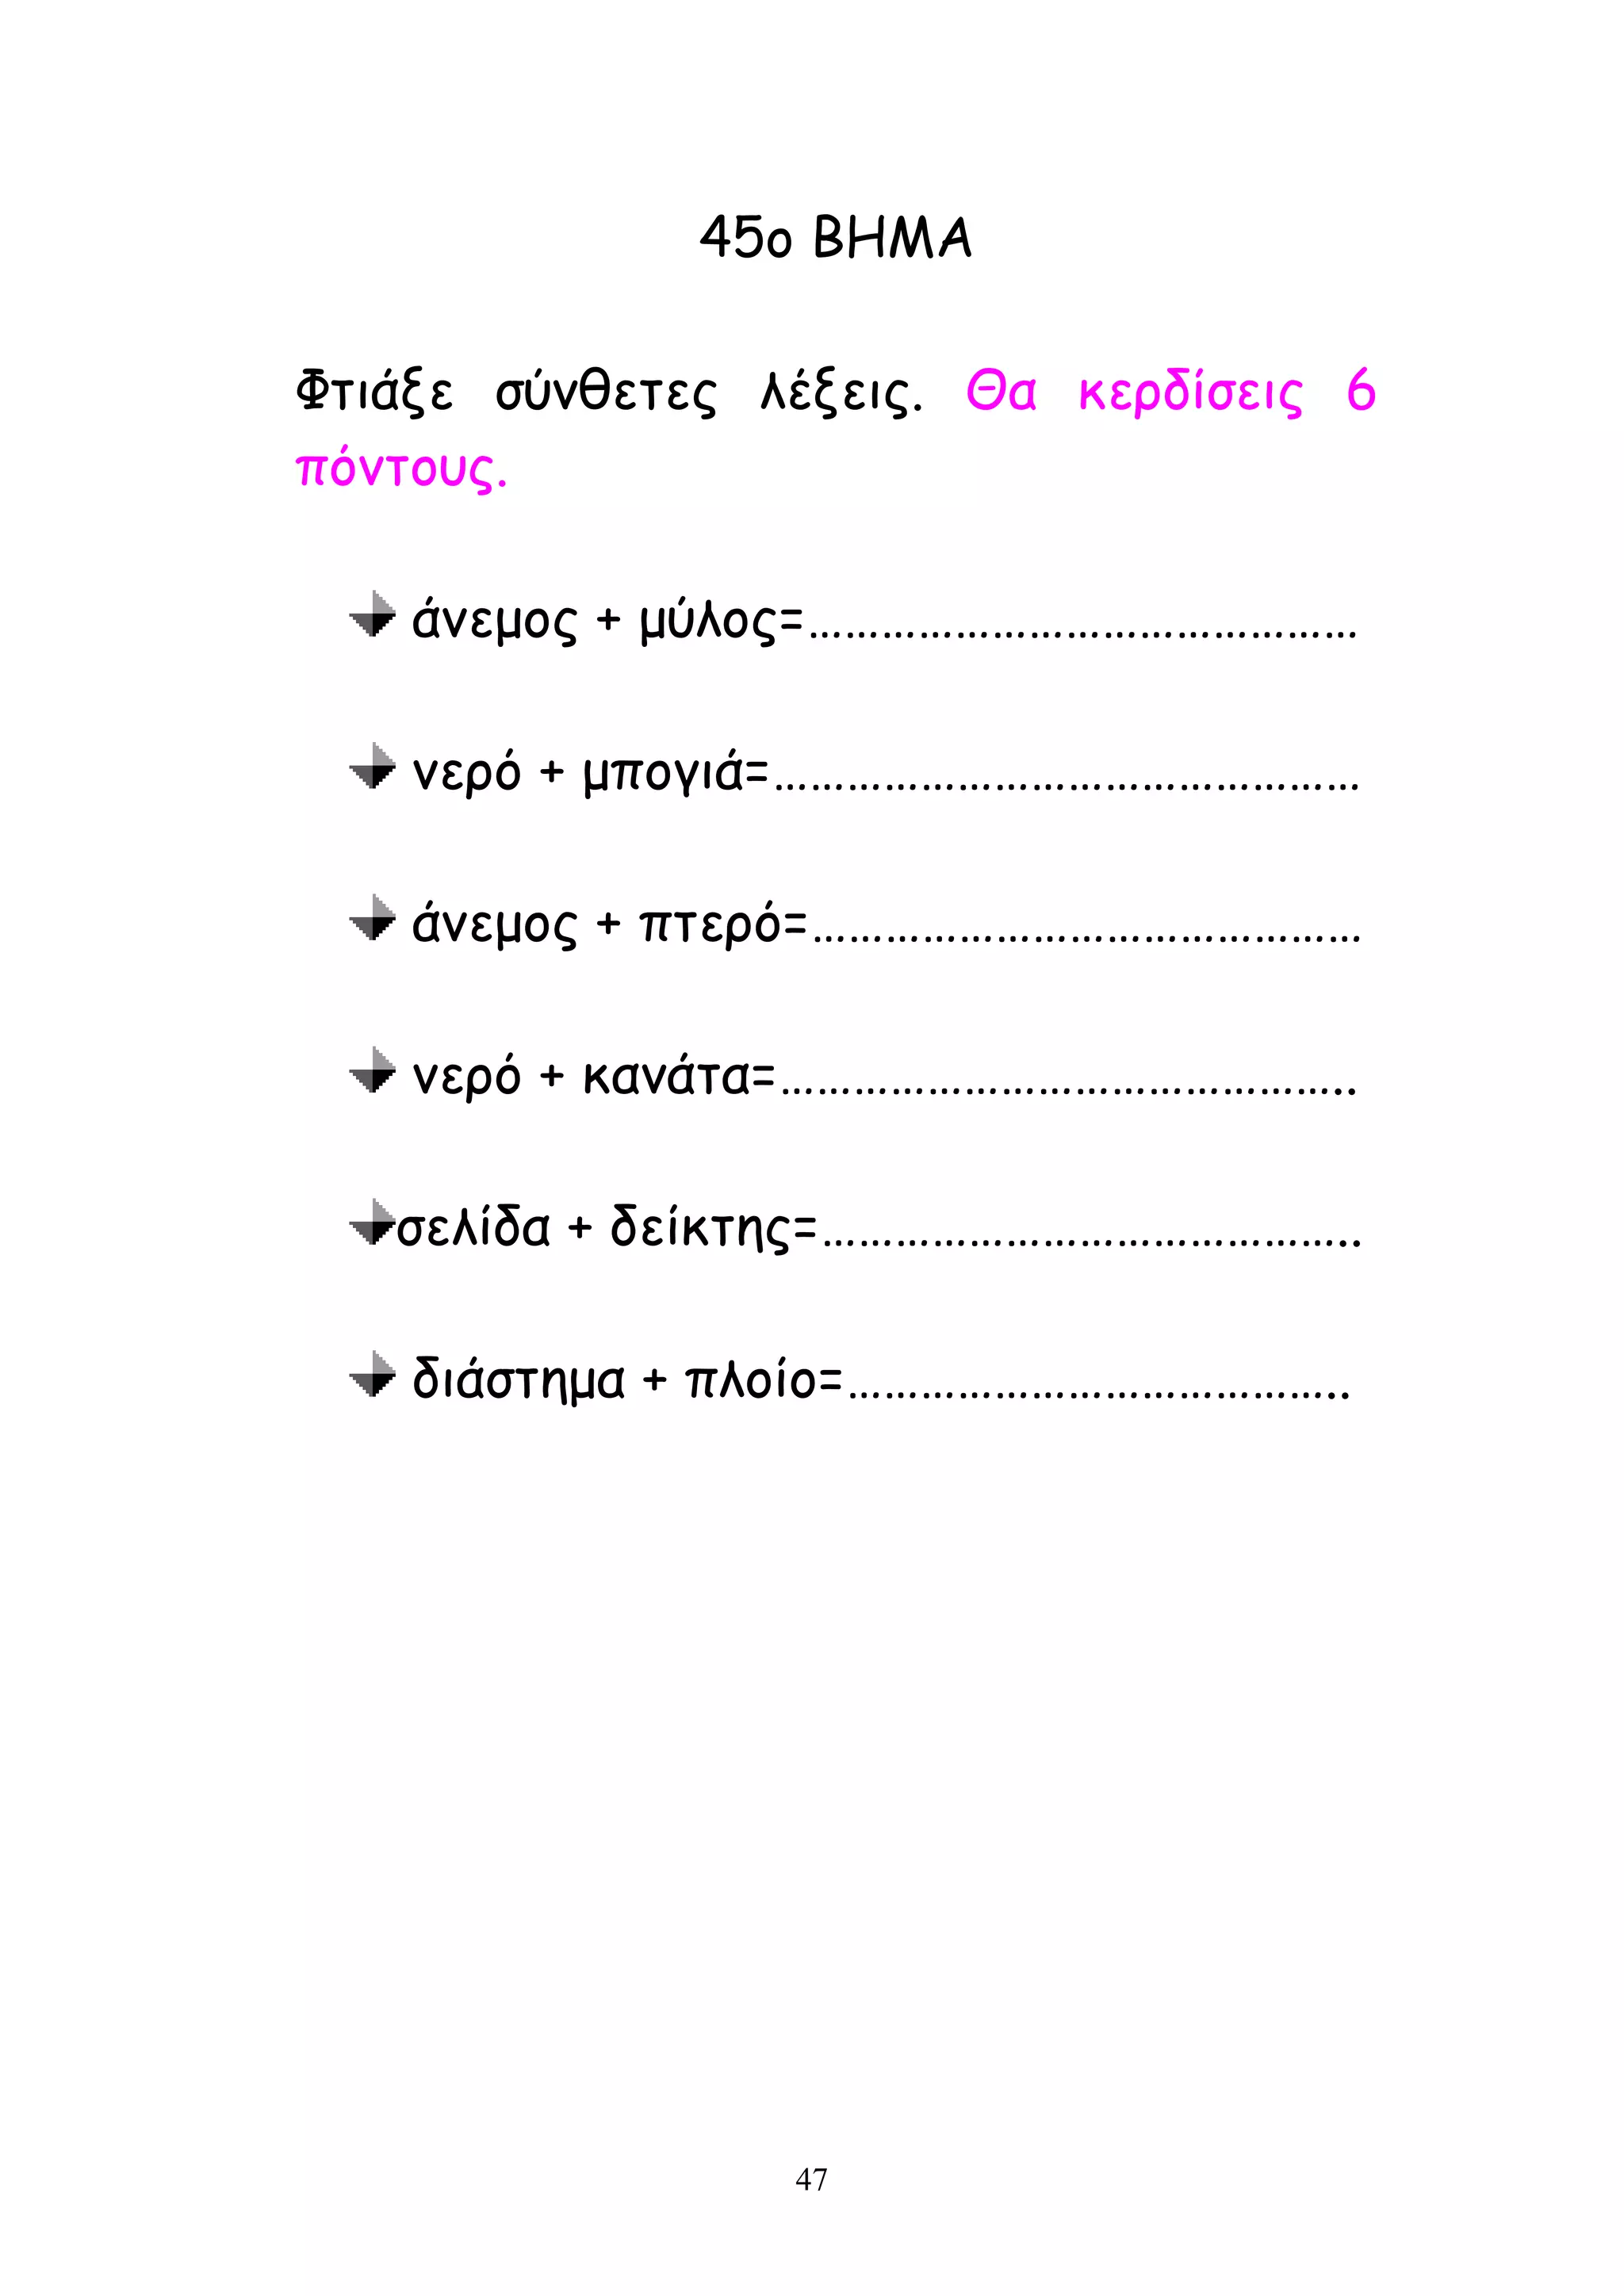 45ο ΒΗΜΑ
Φτιάξε σύνθετες λέξεις. Θα κερδίσεις 6
πόντους.
άνεμος + μύλος=………………………………………
νερό + μπογιά=…………………………………………
άνεμος + πτερό=………………………………………
νερό + κανάτα=………………………………………..
σελίδα + δείκτης=……………………………………..
διάστημα + πλοίο=…………………………………..
47